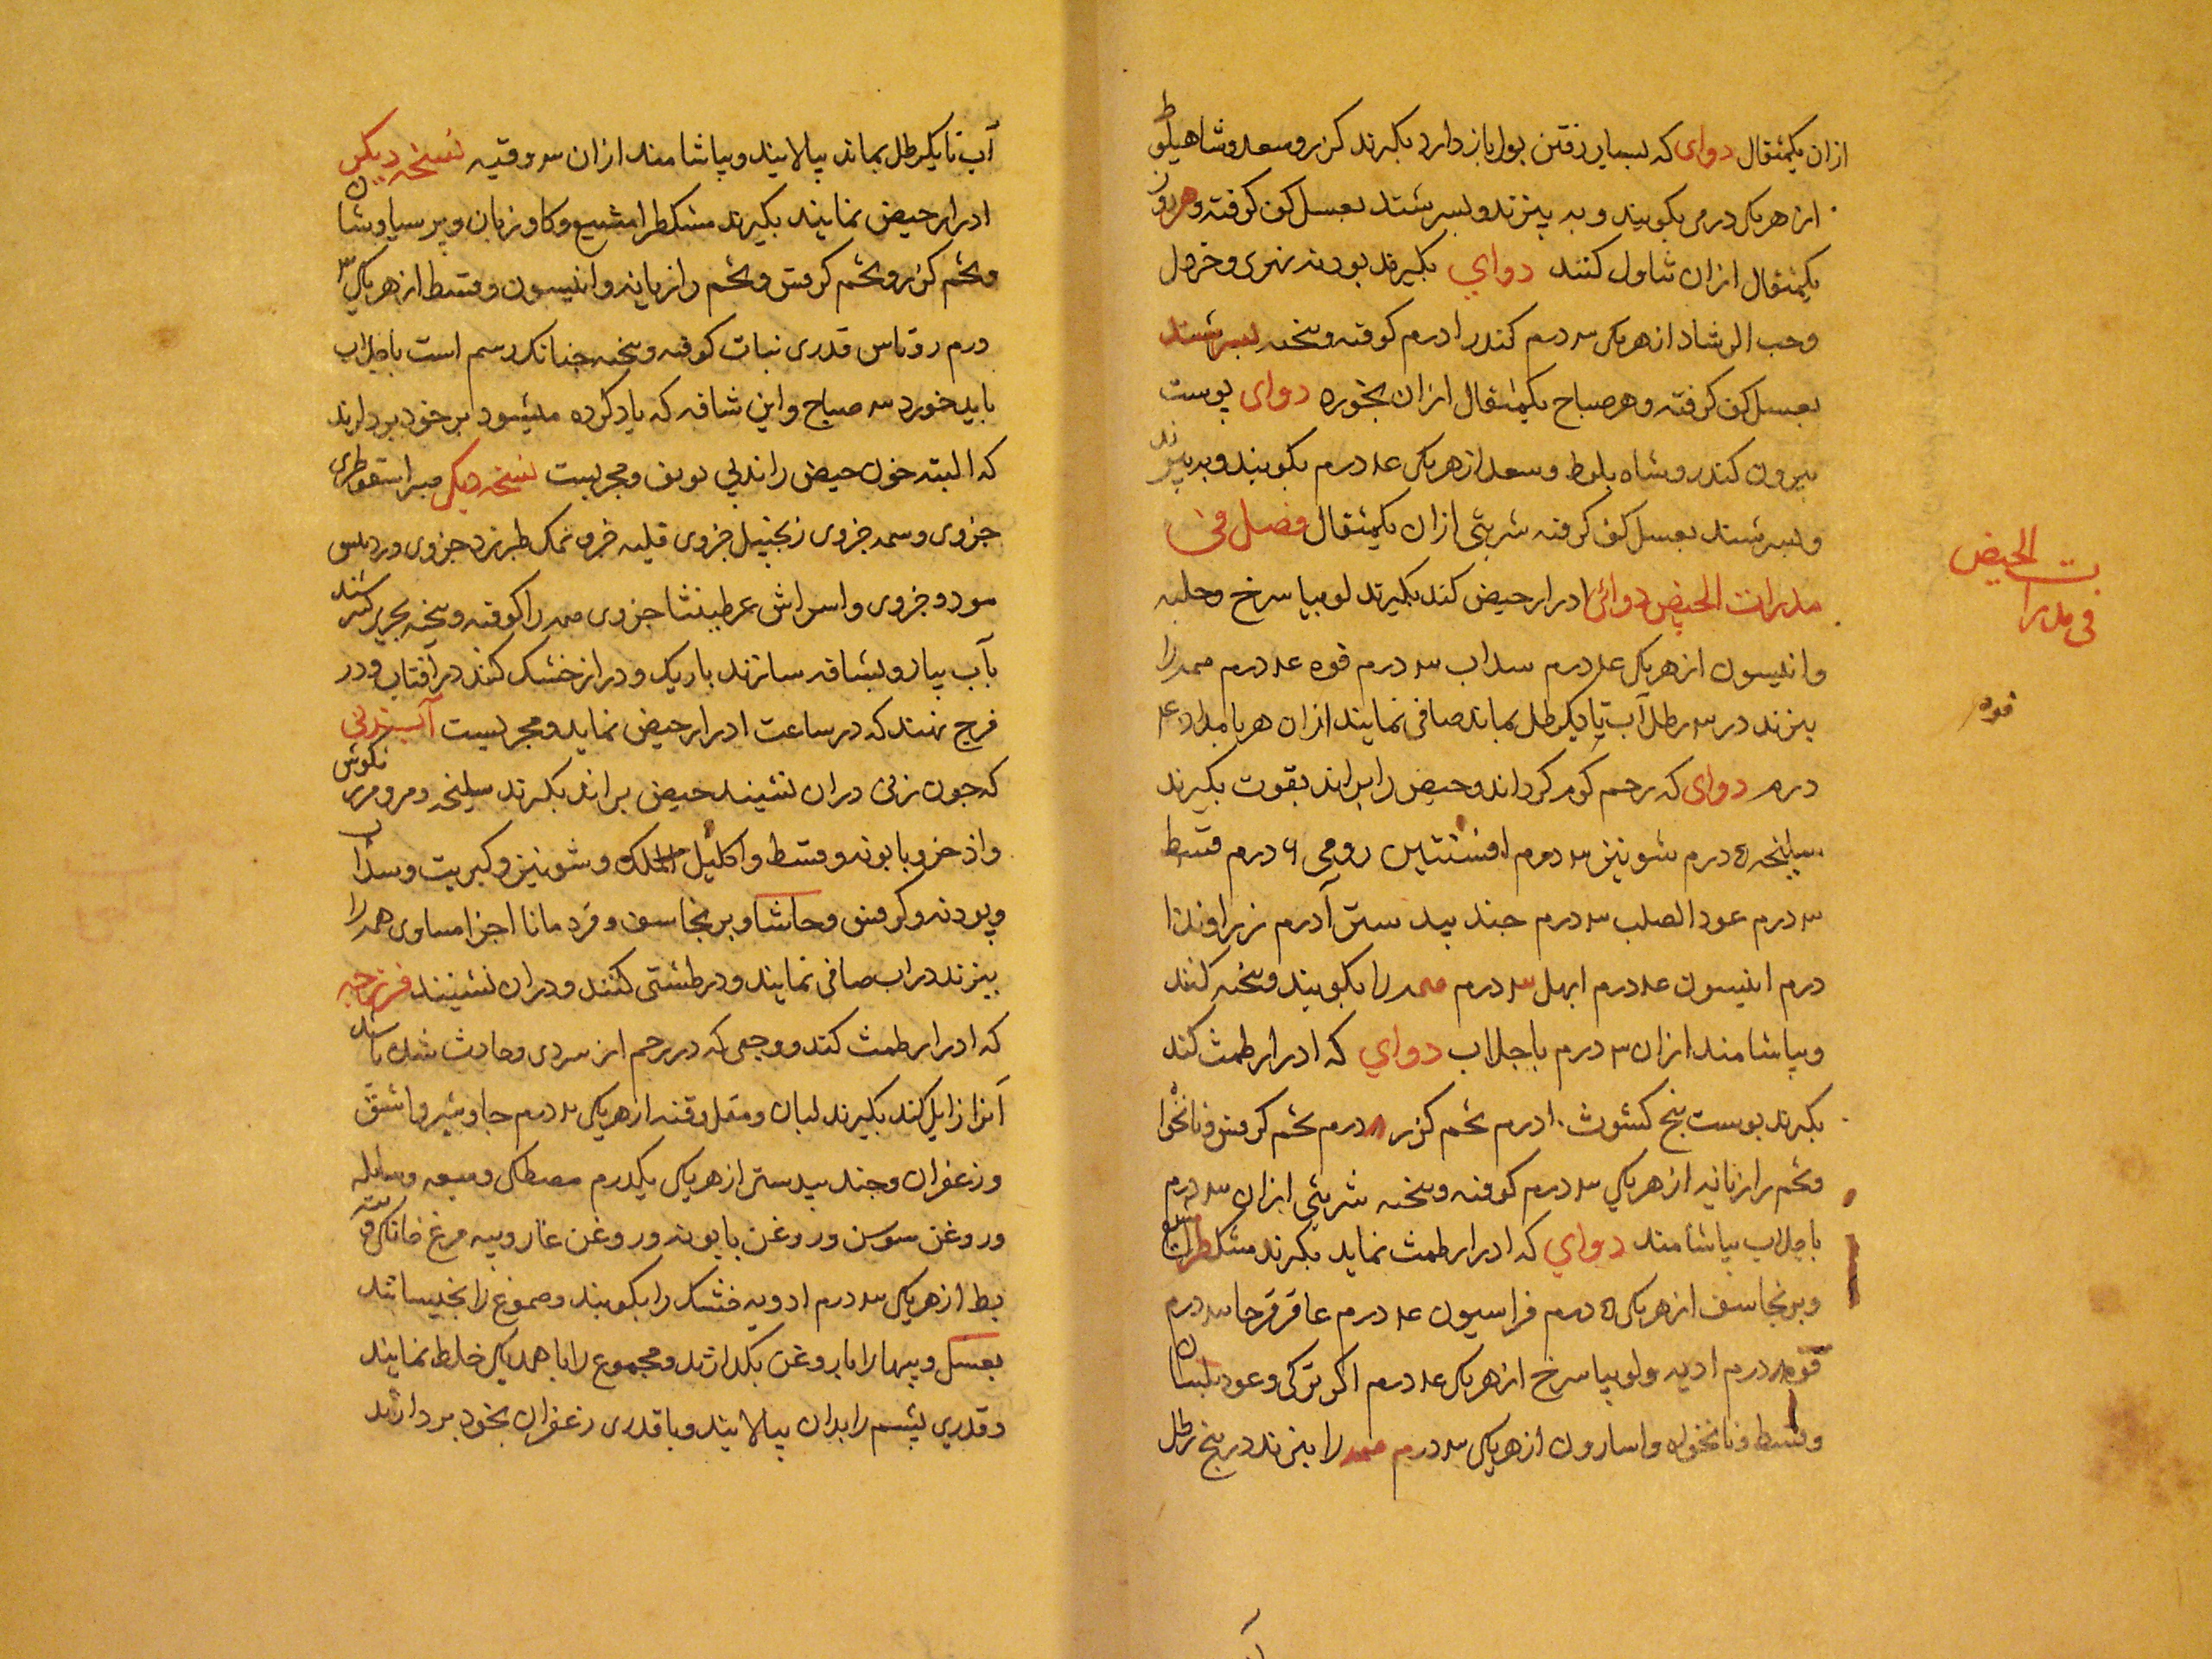 ازان یکمثقال دوای که بسیار رفتن بول باز دارد بکیرند کزر و سعد و شاهبلوط
از هریک درمی بکوبند و به بیزند و بسرشند بعسل کف کرفته و هر روز
یکمثقال ازان تناول کنند دوای بکیرند بودنه نهری و خردل
وحب الرشاد از هریک ۳ درم کندر ۱۰ درم کوفته وبیخته بسرشند
بعسل کف کرفته و هر صباح یکمثقال ازان بخوره دوای بوست
بیرون کندر و شاه بلوط و سعد از هریک ۴ درم بکوبند و به بیزند
وبسرشند بعسل کف کرفته شربتی ازان یکمثقال فصل فی
مدرات الحیض دوائی ادرار حیض کند بکیرند لوبیا سرخ و حلبه
وانیسون از هریک ۴ درم سداب ۳ درم فوه ۴ درم همه را
بزند در ۳ رطل آب تا یکرطل بماند صافی نمایند ازان هر بامداد ۴
درم دوای که رحم کرم کرداند و حیض را براند بقوت بکیرند
سلیخه ۵ درم شونیز ۳ درم افسنتین رومی ۶ درم قسط
۳ درم عود الصلب ۳ درم جند بید ستر ۲ درم زراوند ۱۰
درم انیسون ۴ درم ابهل ۳ درم همه را بکوبند و بیخته کنند
وبیاشامند ازان ۳ درم باجلاب دوای که ادرار طمث کند
بکیرند بوست بیخ کشوث ۱۰ درم تخم کزر درم تخم کرفس و نانخوا
وتخم رازیانه از هریک ۳ درم کوفته وبیخته شربتی ازان ۳ درم
باجلاب بیاشامند دوای که ادرار طمث نماید بکیرند مشکطرامشیع
وبرنجاسف از هریک ۵ درم فراسیون ۴ درم عاقرقرحا ۳ درم
فوه درم ادیه و لوبیا سرخ از هریک ۴ درم اکر ترکی و عود بلسان
وقسط و نانخواه و اسارون از هریک ۳ درم همه را بزند در بنج رطل
فی مدرات الحیض
فوه
آب تا یکرطل بماند بیالایند و بیاشامند ازان ۳ وقیه نسخه دیکر
ادرار حیض نمایند بکیرند مشکطرامشیع و کاوزبان و برسیاوشان
وتخم کزر و تخم کرفس وتخم رازیانه وانیسون و قسط از هریک ۳
درم روناس قدری نبات کوفته وبیخته جنانک رسم است باجلاب
باید خورد سه صباح و این شافه که یاد کرده میشود بر خود بردارند
که البته خون حیض راند بی توقف و مجربست نسخه دیکر صبر اسقوطری
جزوی وسمه جزوی زنجبیل جزوی قلیه جزو نمک طبرزد جزوی و
جزوی و اسراش عرطنیثا جزوی همه را کوفته وبیخته بحریر کنند بسرشند
بآب بیاز و بشافه سازند باریک و دراز خشک کنند در آفتاب و در
فرج نهند که در ساعت ادرار حیض نماید و مجربست آبزنی
که جون زنی دران نشیند حیض براند بکیرند سلیخه و مر و مرزنکوش
واذخر و بابونه و قسط و اکلیل الملک و شونیز و کبریت و سداب
وبودنه و کرفس و حاشا و برنجاسف و قردمانا اجزا مساوی همه را
بیزند دراب صافی نمایند و در طشتی کنند و دران نشینند فرزجه
که ادرار طمث کند و وجعی که در رحم از سردی و حادث شده باشد
آنرا زایل کند بکیرند لبان و مقل و قنه از هریک ۲ درم جاوشیر و اشق
وزعفران و جند بیدستر از هریک یکدرم مصطکی و میعه و سایله
وروغن سوسن و روغن بابونه و روغن غار و بیه مرغ خانکی و
بط از هریک ۳ درم ادویه خشک را بکوبند و صموغ را بخیسانند
بعسل و بیهارا با روغن بکدازند و مجموع را با همدیکر خلط نمایند
وقدری بشم را بدان بیالایند و با قدری زعفران بخود بردارند